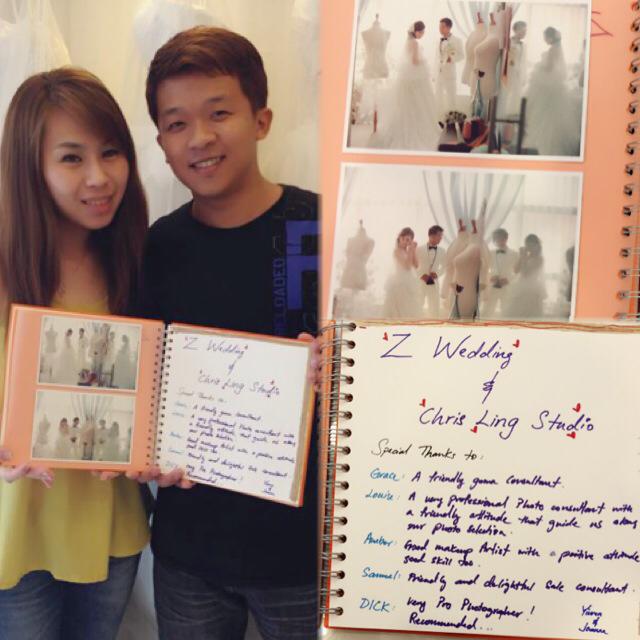 "Z Wedding"
&
"Chris Ling Studio"
Special Thanks to:
Grace: A friendly gown consultant.
Louise: A very professional Photo consultant with
a friendly attitude that guide us along
our photo selection.
Amber: Good makeup Artist with a positive attitude
good skill too.
Samuel: Friendly and delightful Sale consultant.
DICK: Very Pro Photographer!
Recommended...
Yung
&
RELOADED
"Z Wedding"
&
"Chris Ling Studio"
Special Thanks to: